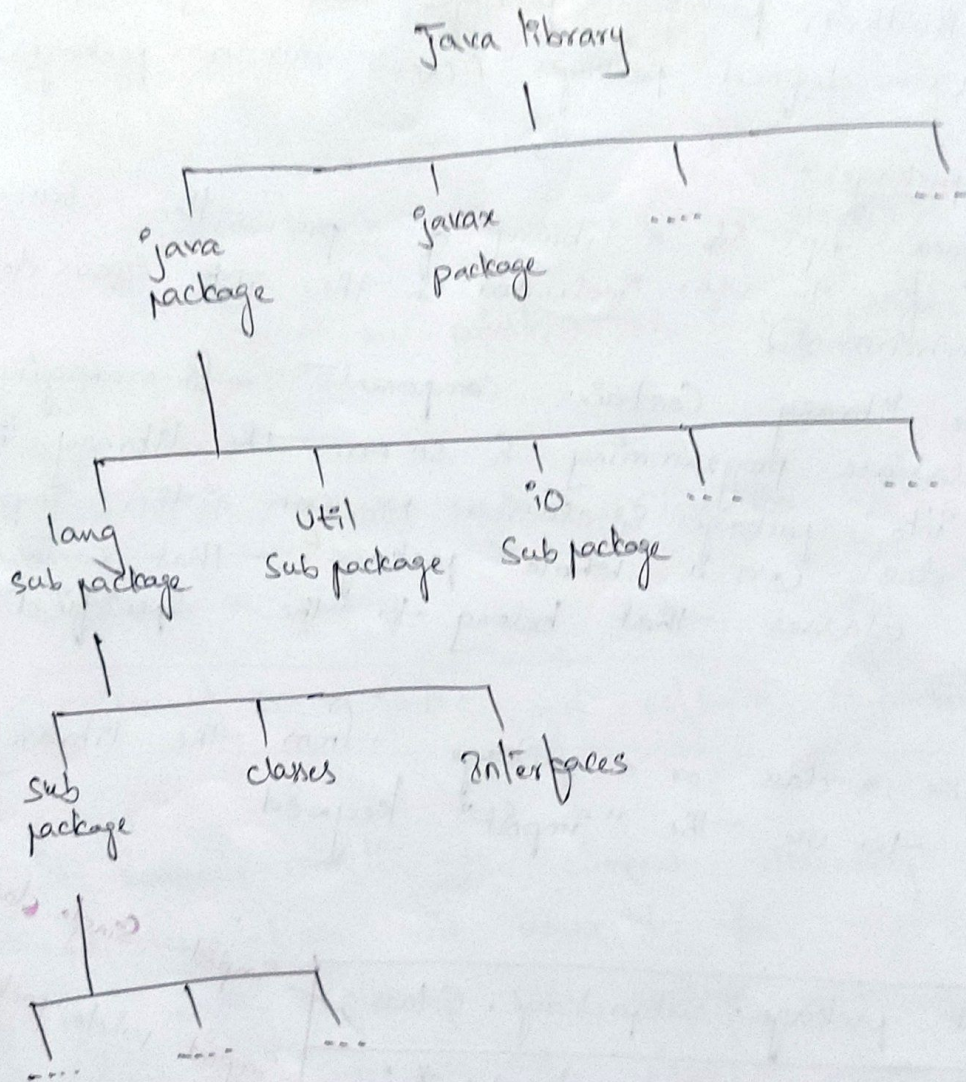 Java library
java
package
javax
package
....
...
lang
sub package
util
sub package
io
sub package
....
....
sub
package
classes
Interfaces
....
....
...